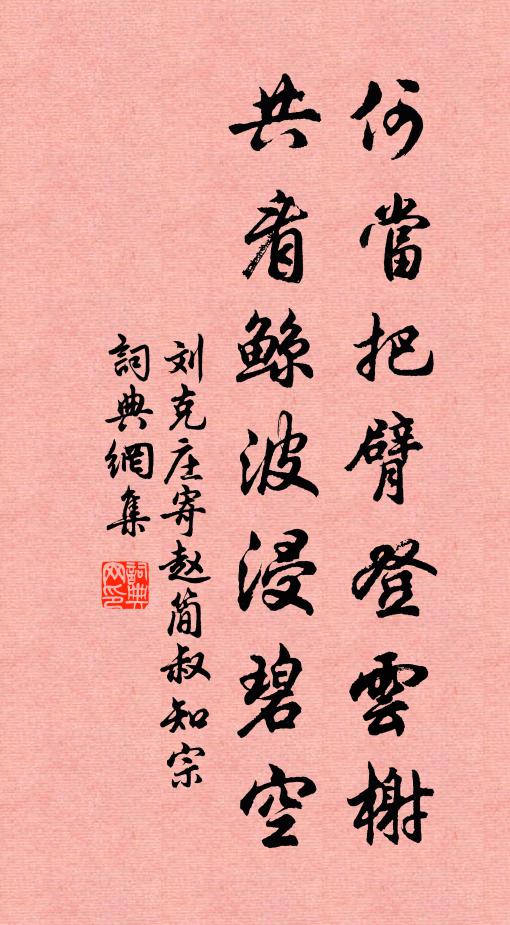 何當把臂登雲榭
共看鲸波浸碧空
刘克庄寄赵简叔知宗
詞典網集
詞典網印